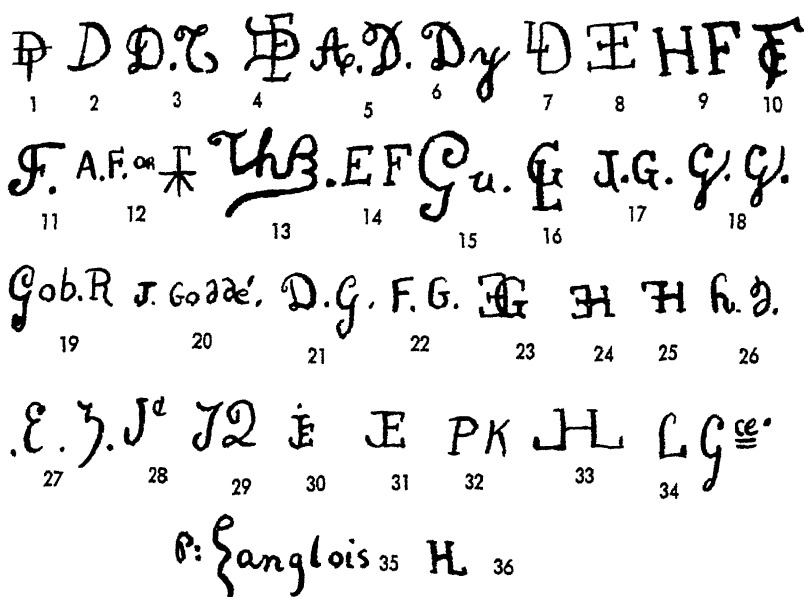 DT D D.T. DEF A.D. Dy LD EE HF FC
1 2 3 4 5 6 7 8 9 10
F. A.F. OR AF ThB. EF Gu. GL J.G. G.G.
11 12 13 14 15 16 17 18
Gob.R J. Goddé. D.G. F.G. EG EH FH h.d.
19 20 21 22 23 24 25 26
.E.Z. Jd JD JE JE PK JHL LGce.
27 28 29 30 31 32 33 34
P: Langlois 35 HL 36